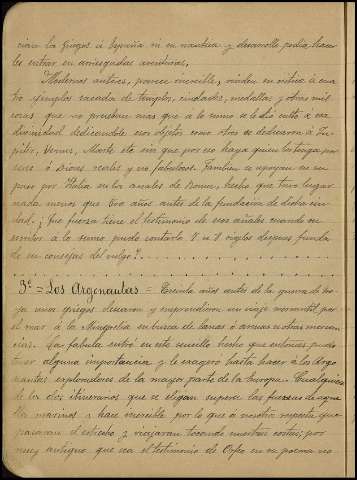 cion la griegos á España ni en nautica y desarrollo podia hacer
les entrar en arriesgadas aventuras,
Modernos autores, parece increible, rinden su critica á cua
tro ejemplos sacados de templos, ciudades, medallas y otras mil
cosas que no prueban mas que á lo sumo se le dió culto á esa
divinidad dedicandole esos objetos como otros se dedicaron á Ju-
piter, Venus, Marte etc sin que por eso haya quien los tenga por
seres ó Dioses reales y no fabulosos. Tambien se apoyan en su
paso por Italia en los anales de Roma, hecho que tuvo lugar
nada menos que 600 años antes de la fundacion de dicha ciu-
dad. ¿Que fuerza tiene el testimonio de esos anales cuando su
escritor á lo sumo pudo contarlo V ú VI siglos despues funda
do en consejas del vulgo?
3º = Los Argonautas = Treinta años antes de la guerra de Tro-
ya unos griegos idearon y emprendieron un viaje mercantil por
el mar á la Mingrelia en busca de lanas ó acaso otras mercan-
cias. La fabula entró en este sencillo hecho que entonces pudo
tener alguna importancia y le exageró hasta hacer á los Argo
nautas exploradores de la mayor parte de la Europa. Cualquiera
de los dos itinerarios que se elijan supera las fuerzas de aque
llos marinos y hace increible por lo que á nosotros respecta que
pasaran el estrecho y viajaran tocando nuestras costas; por
muy antiguo que sea el testimonio de Orfeo en su poema no